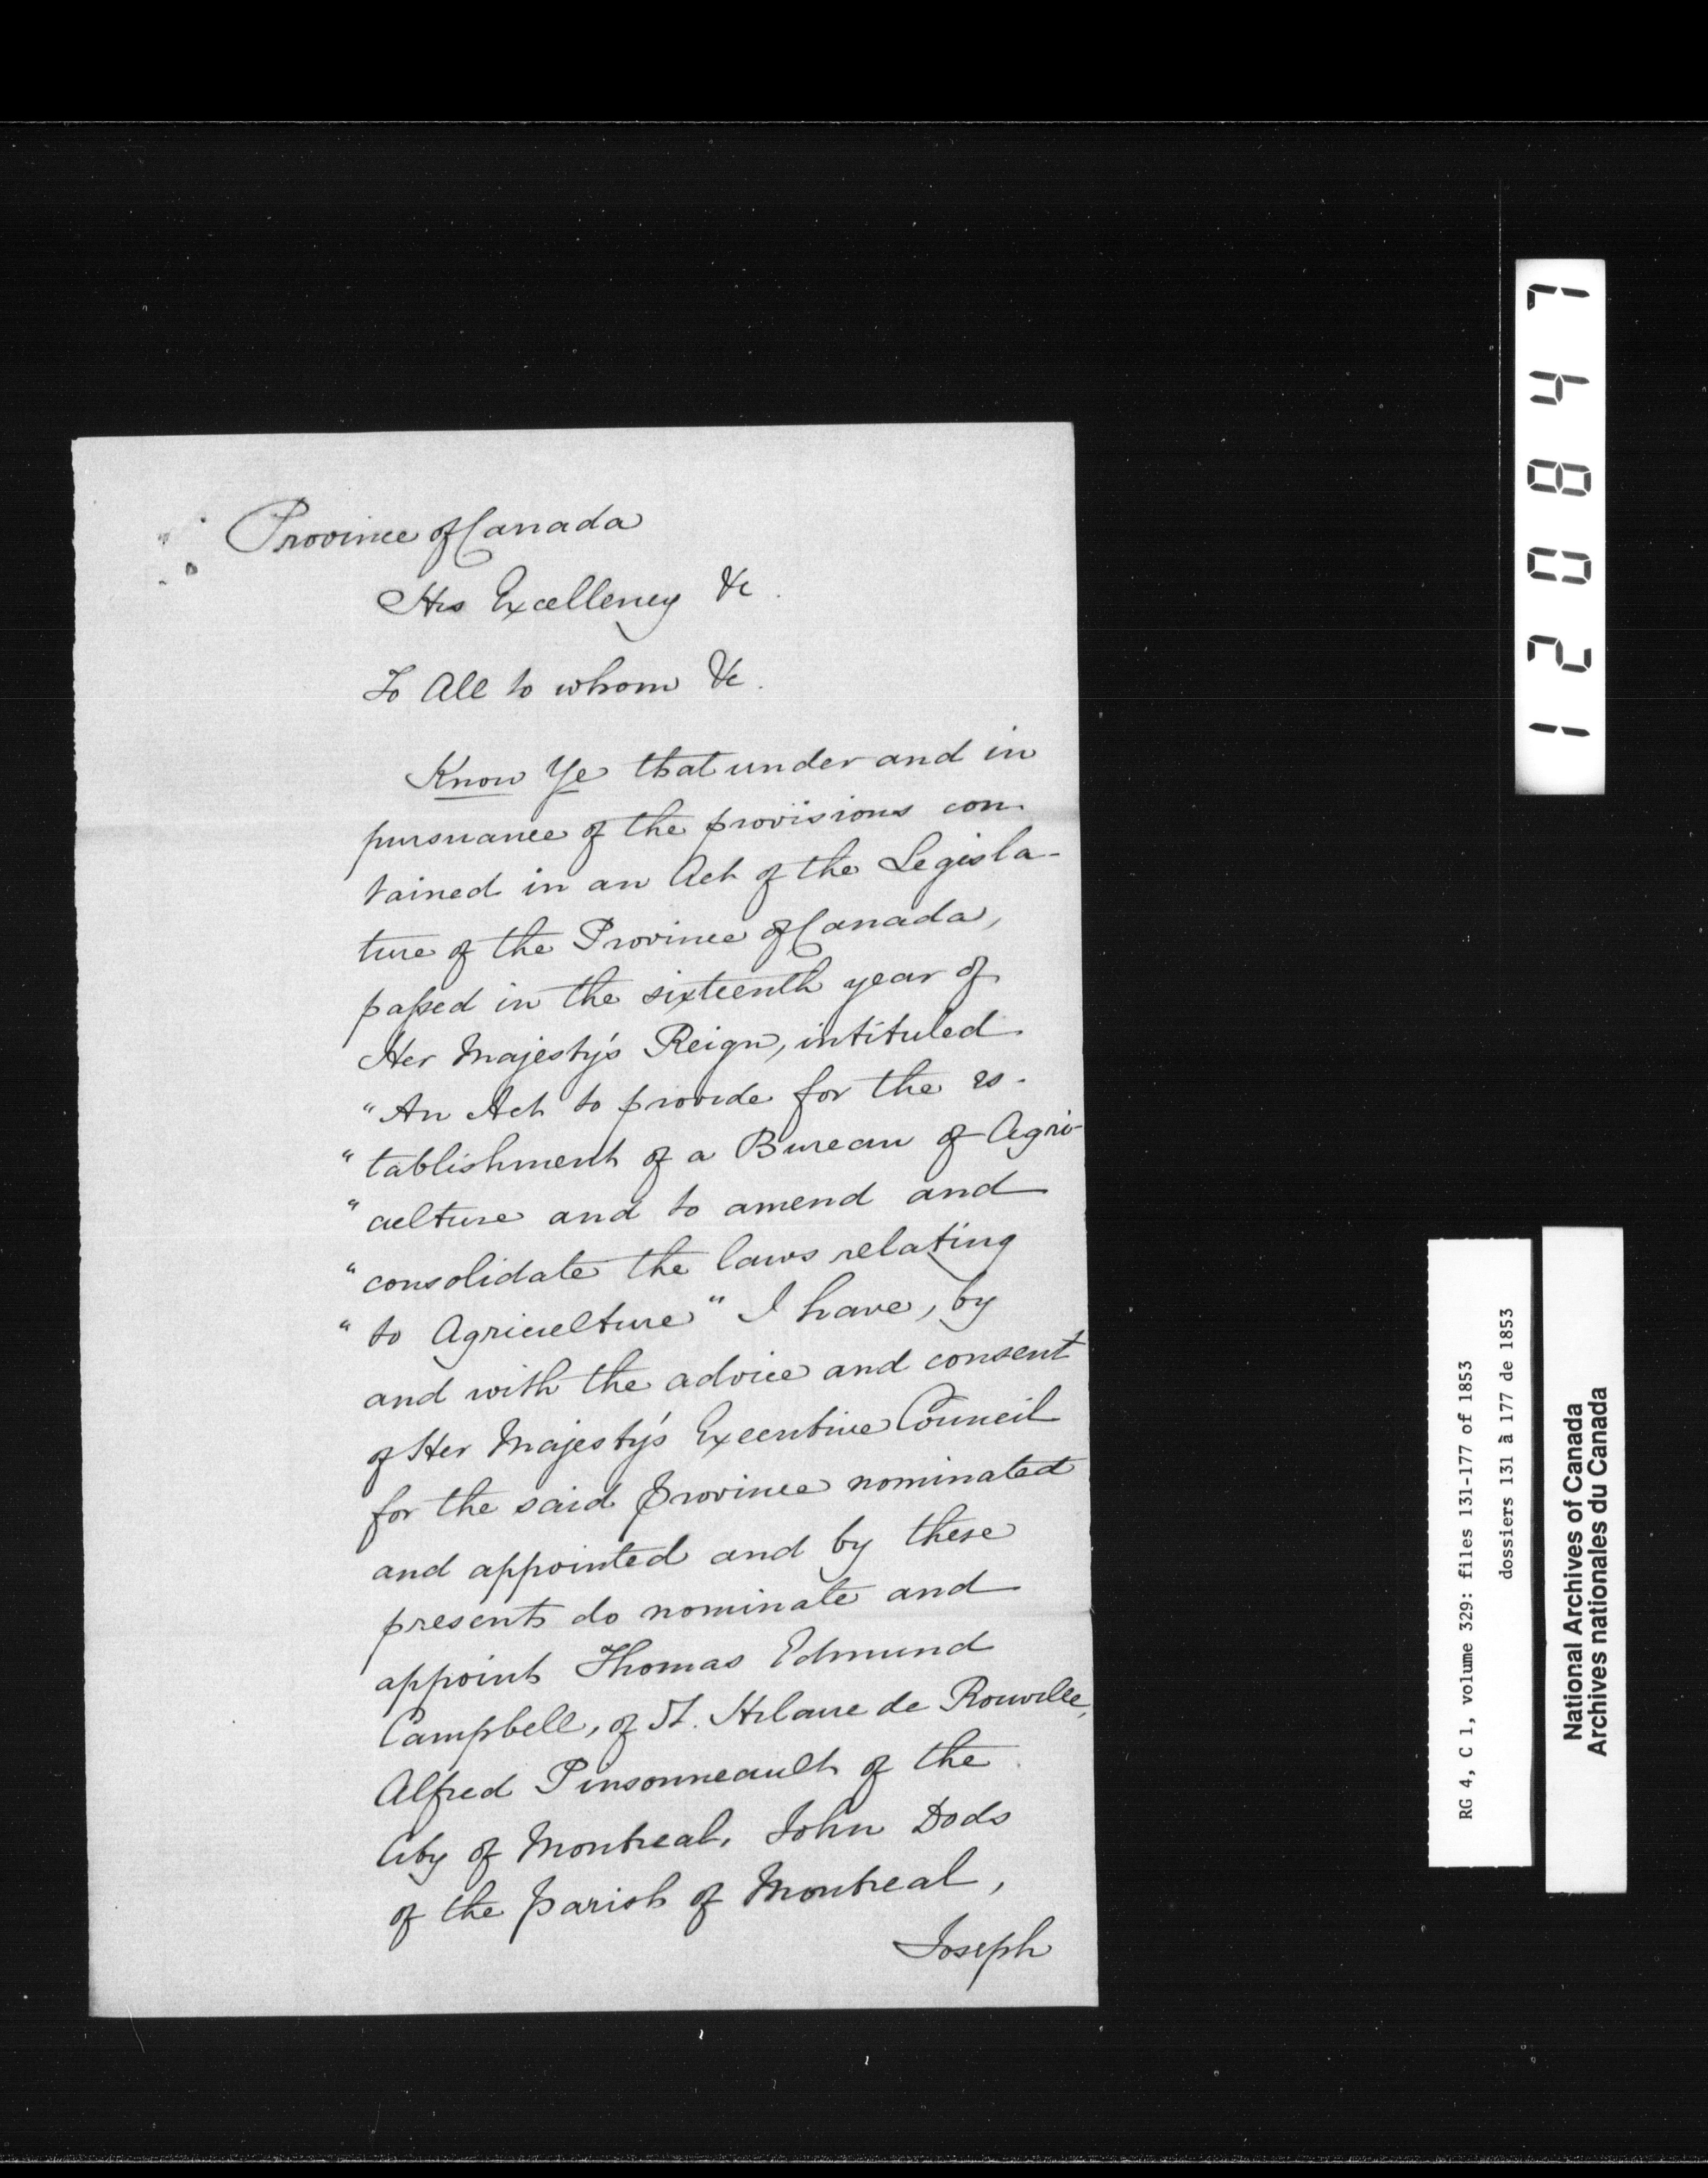 Province of Canada
His Excellency &c.
To All to whom &c.
Know Ye that under and in
pursuance of the provisions con-
tained in an Act of the Legisla-
ture of the Province of Canada,
passed in the sixteenth year of
Her Majesty's Reign, intituled
"An Act to provide for the es-
"tablishment of a Bureau of Agri-
"culture and to amend and
"consolidate the laws relating
"to Agriculture" I have, by
and with the advice and consent
of Her Majesty's Executive Council
for the said Province nominated
and appointed and by these
presents do nominate and
appoint Thomas Edmund
Campbell, of St. Hilaire de Rouville,
Alfred Pinsonneault of the
City of Montreal, John Dods
of the Parish of Montreal,
Joseph
120847
RG 4, C 1, volume 329: files 131-177 of 1853
dossiers 131 à 177 de 1853
National Archives of Canada
Archives nationales du Canada